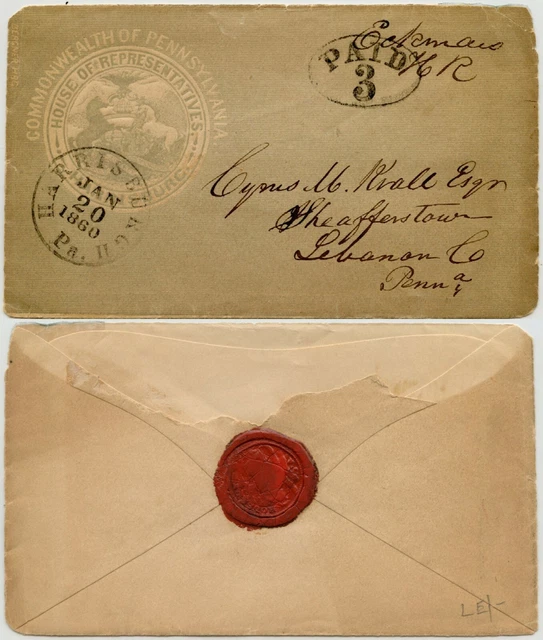 COMMONWEALTH OF PENNSYLVANIA
HOUSE OF REPRESENTATIVES
HARRISBURG
Pa. H
JAN
20
1860
PAID
3
H R
Cyrus M. Krall Esqr
Sheafferstown
Lebanon Co
Penna
LE/-